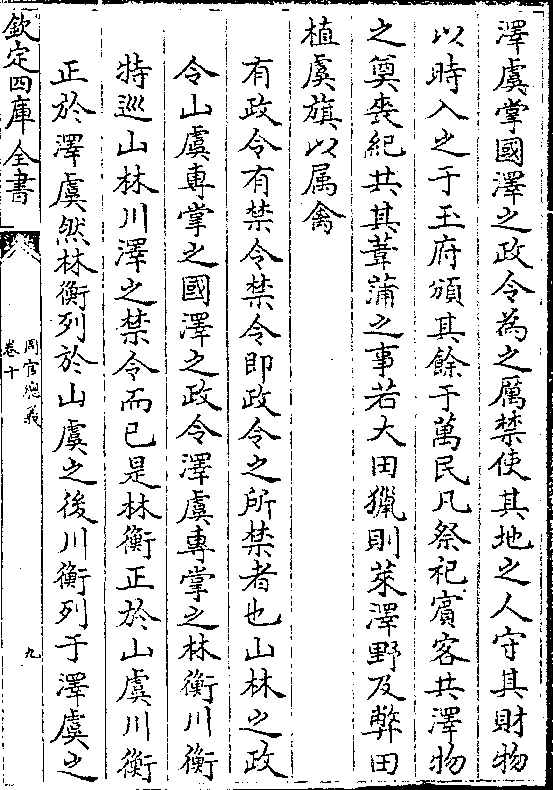 澤虞掌國澤之政令為之厲禁使其地之人守其財物
以時入之于玉府頒其餘于萬民凡祭祀賓客共澤物
之奠喪紀共其葦蒲之事若大田獵則萊澤野及弊田
植虞旗以属禽
有政令有禁令禁令即政令之所禁者也山林之政
令山虞專掌之國澤之政令澤虞專掌之林衡川衡
特巡山林川澤之禁令而已是林衡正於山虞川衡
正於澤虞然林衡列於山虞之後川衡列于澤虞之
欽定四庫全書
周官總義
卷十
九